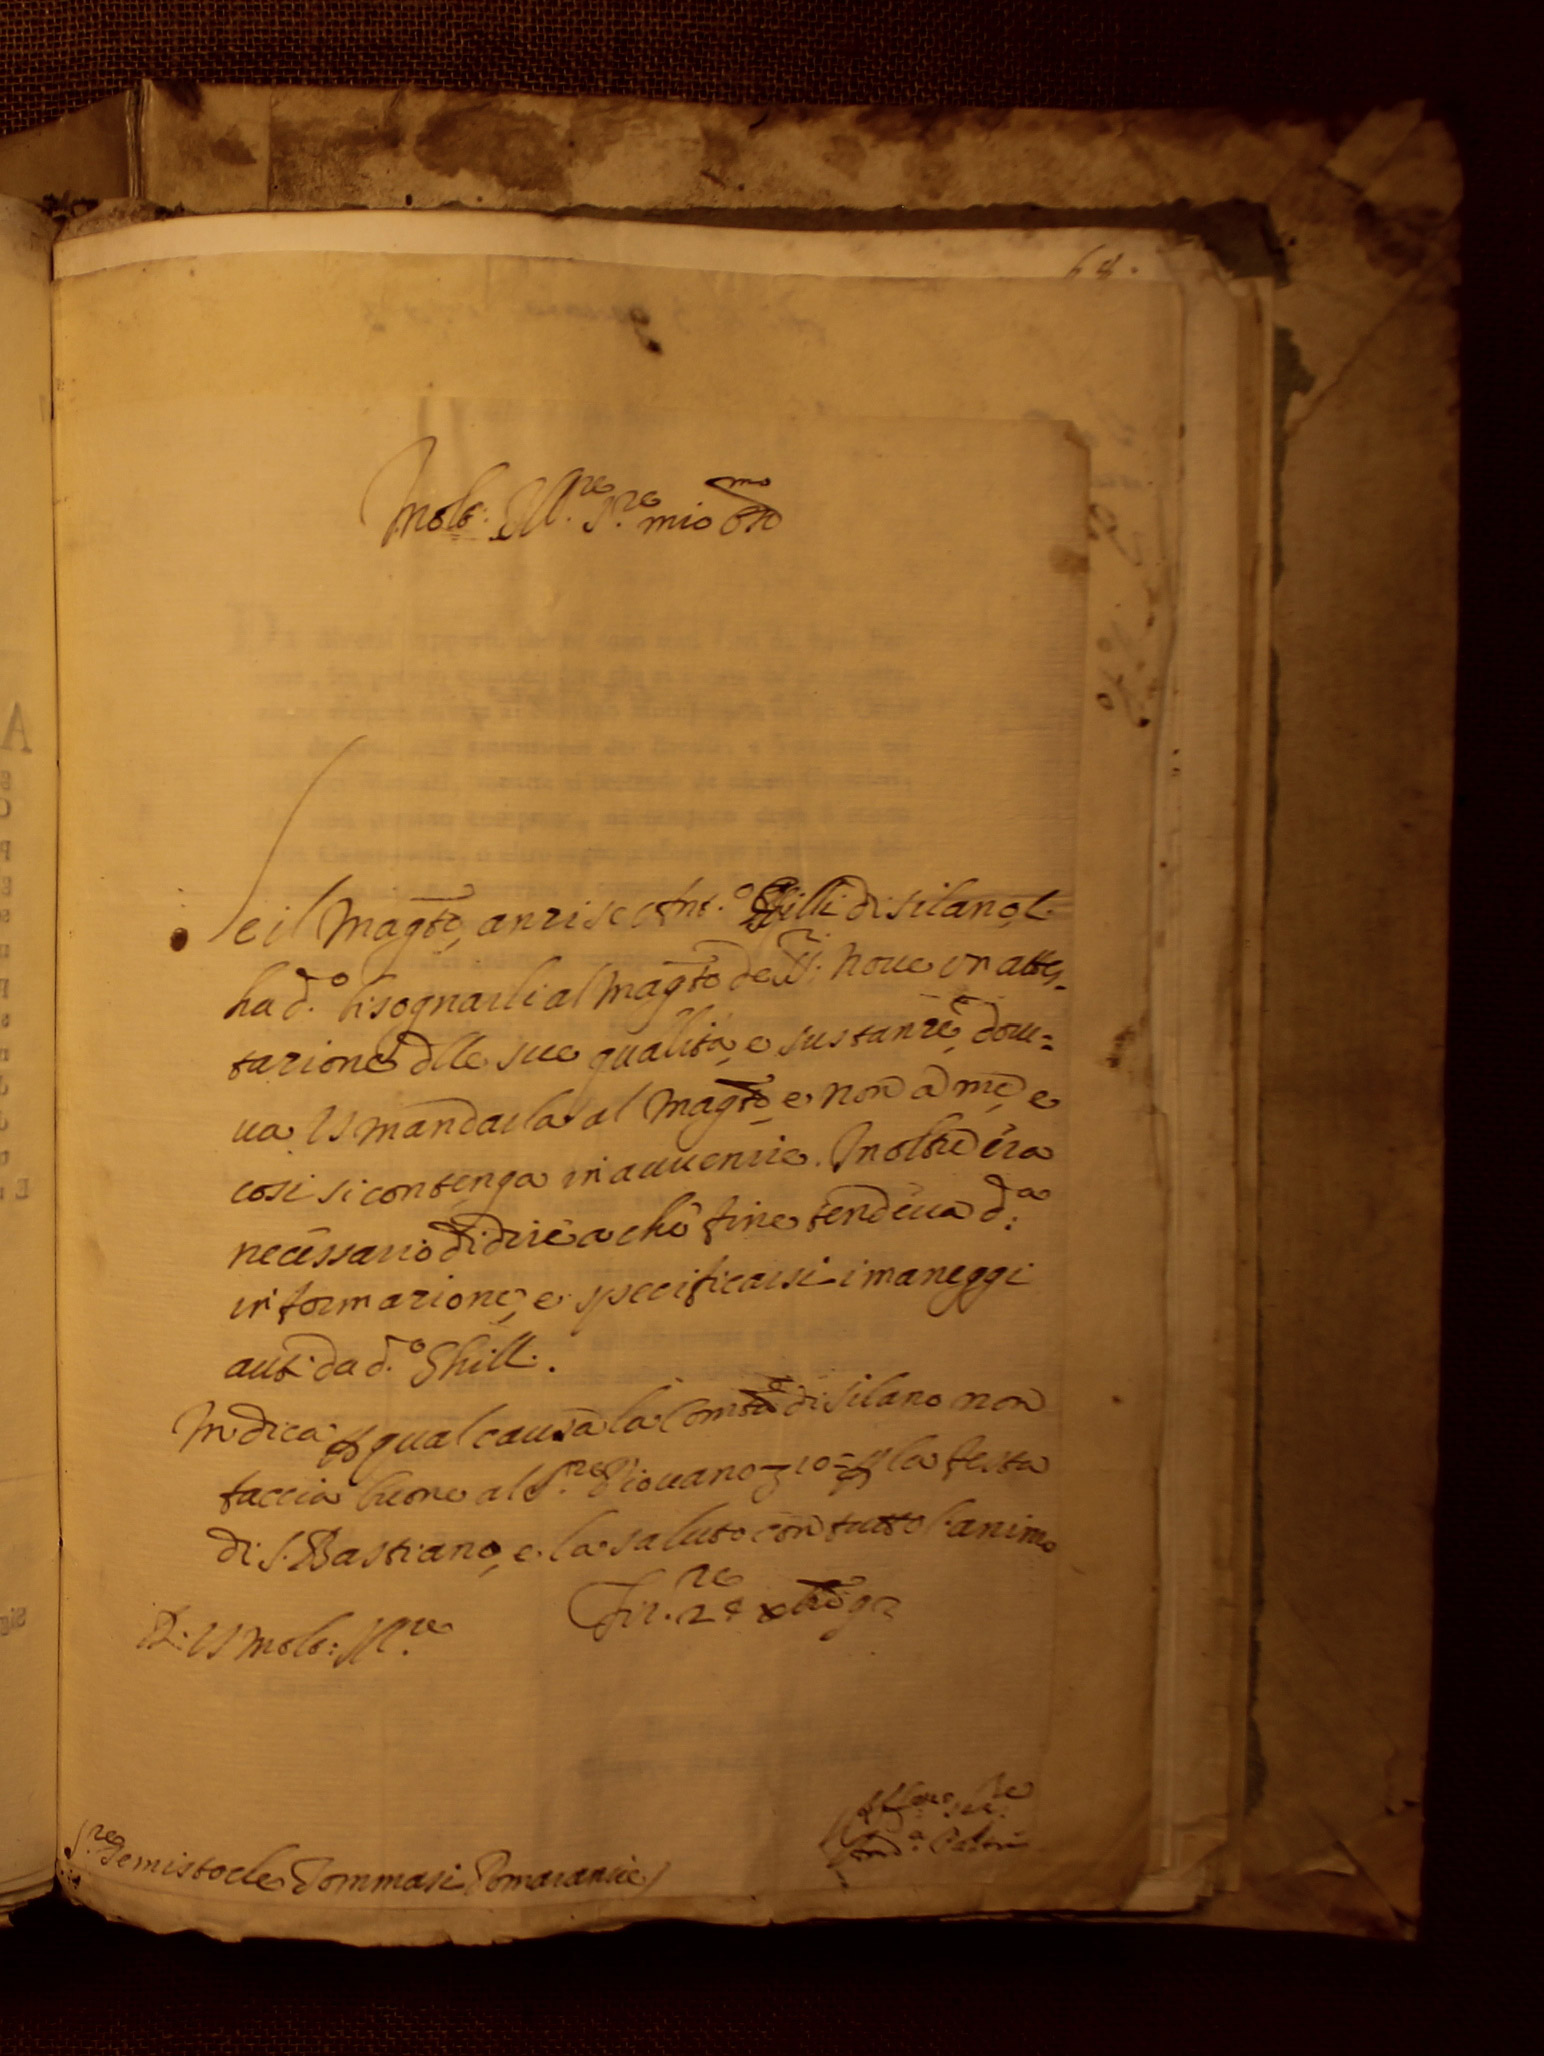 68.
Molt: Ill.re S.re mio
Se il Mag.to, anzi se Ghilli di silano, l.
ha d.o bisognarli al Mag.to de Nove un attes-
tazione dlle sue qualità, e sustanze, dove=
va VS mandarla al Mag.to, e non à me, e
così si contenga in avvenire. Inoltre era
necessario di dire a che fine tendeva d.a
informazione, e specificarsi i maneggi
aut. da d.o Ghill.
Mi dica p qual causa la Comtà di silano non
faccia buone al S.re Piovano 10 p la festa
di S. Bastiano, e la saluto con tutto l'animo
Di VS Molt: Ill.re
Fir.ze
S.re Temistocle Tommasi Pomarancie